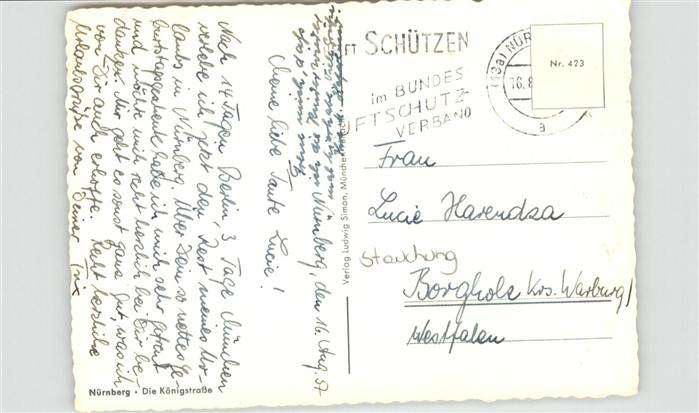 Nürnberg, den 16. Aug. 57
Meine liebe Tante Lucie!
Nach 14 Tagen Berlin, 3 Tage München
verlebe ich jetzt den Rest meines Ur-
laubs in Nürnberg. Über Dein so nettes Ge-
burtstagsgeschenk habe ich mich sehr gefreut
und möchte mich recht herzlich bei Dir be-
danken. Mir geht es sonst ganz gut, was ich
von Dir auch erhoffe. Recht herzliche
Urlaubsgrüße von Deiner
Nürnberg · Die Königstraße
Verlag Ludwig Simon, München
SCHÜTZEN
im BUNDES
LUFTSCHUTZ-
VERBAND
(13a) NÜR
16.8.
a
Nr. 423
Frau
Lucie Harendza
Stauchung
Borgholz Krs. Warburg/
Westfalen